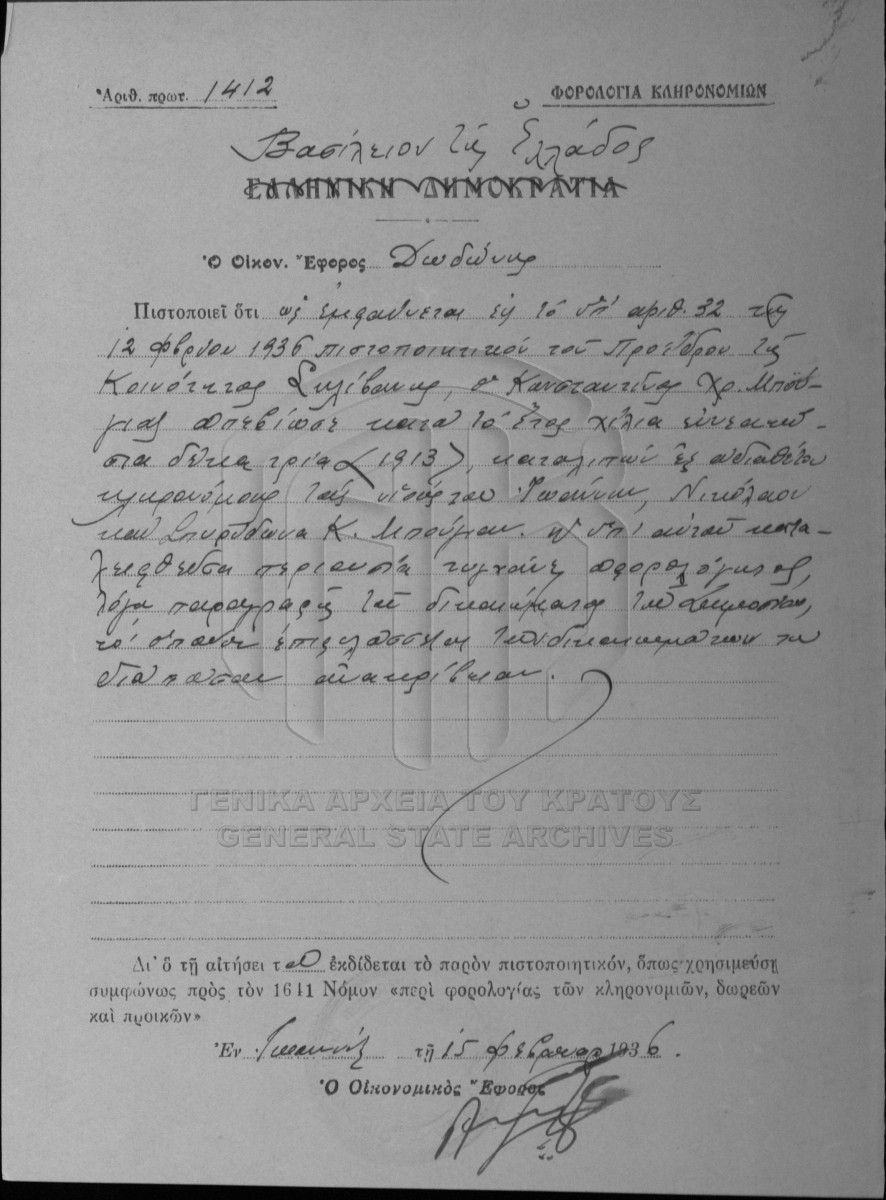 Ἀριθ. πρωτ. 1412
ΦΟΡΟΛΟΓΙΑ ΚΛΗΡΟΝΟΜΙΩΝ
Βασίλειον τῆς Ἑλλάδος
ΕΛΛΗΝΙΚΗ ΔΗΜΟΚΡΑΤΙΑ
Ὁ Οἰκον. Ἔφορος Δωδώνης
Πιστοποιεῖ ὅτι ὡς ἐμφαίνεται ἐκ τοῦ ὑπ' ἀριθ. 32 τῆς
12 φβρίου 1936 πιστοποιητικοῦ τοῦ Προέδρου τῆς
Κοινότητος, ὁ Κωνσταντῖνος Χρ. Μπού-
μας ἀπεβίωσε κατὰ τὸ ἔτος χίλια ἐννεακό-
σια δέκα τρία (1913), καταλιπὼν ἐξ ἀδιαθέτου
κληρονόμους τοὺς υἱούς του Ἰωάννην, Νικόλαον
καὶ Σπυρίδωνα Κ. Μπούμαν. ἡ ὑπ' αὐτοῦ κατα-
λειφθεῖσα περιουσία τυγχάνει ἀφορολόγητος,
λόγῳ παραγραφῆς τοῦ δικαιώματος τοῦ Δημοσίου,
τὸ ὁποῖον ἐπιφυλάσσεται τῶν δικαιωμάτων του
διὰ πᾶσαν ἀνακρίβειαν.
ΓΕΝΙΚΑ ΑΡΧΕΙΑ ΤΟΥ ΚΡΑΤΟΥΣ
GENERAL STATE ARCHIVES
Δι' ὃ τῇ αἰτήσει του ἐκδίδεται τὸ παρὸν πιστοποιητικόν, ὅπως χρησιμεύσῃ
συμφώνως πρὸς τὸν 1641 Νόμον «περὶ φορολογίας τῶν κληρονομιῶν, δωρεῶν
καὶ προικῶν»
Ἐν τῇ 15 φεβρουαρ 1936.
Ὁ Οἰκονομικὸς Ἔφορος